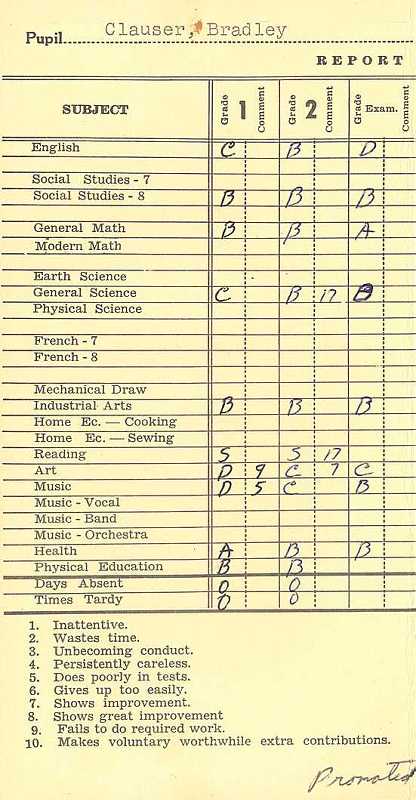 Pupil Clauser, Bradley
REPORT
SUBJECT Grade 1 Comment Grade 2 Comment Grade Exam. Comment
English C B D
Social Studies - 7
Social Studies - 8 B B B
General Math B B A
Modern Math
Earth Science
General Science C B 17 B
Physical Science
French - 7
French - 8
Mechanical Draw
Industrial Arts B B B
Home Ec. — Cooking
Home Ec. — Sewing
Reading S S 17
Art D 9 C 7 C
Music D 5 C B
Music - Vocal
Music - Band
Music - Orchestra
Health A B B
Physical Education B B
Days Absent 0 0
Times Tardy 0 0
1. Inattentive.
2. Wastes time.
3. Unbecoming conduct.
4. Persistently careless.
5. Does poorly in tests.
6. Gives up too easily.
7. Shows improvement.
8. Shows great improvement
9. Fails to do required work.
10. Makes voluntary worthwhile extra contributions.
Promoted